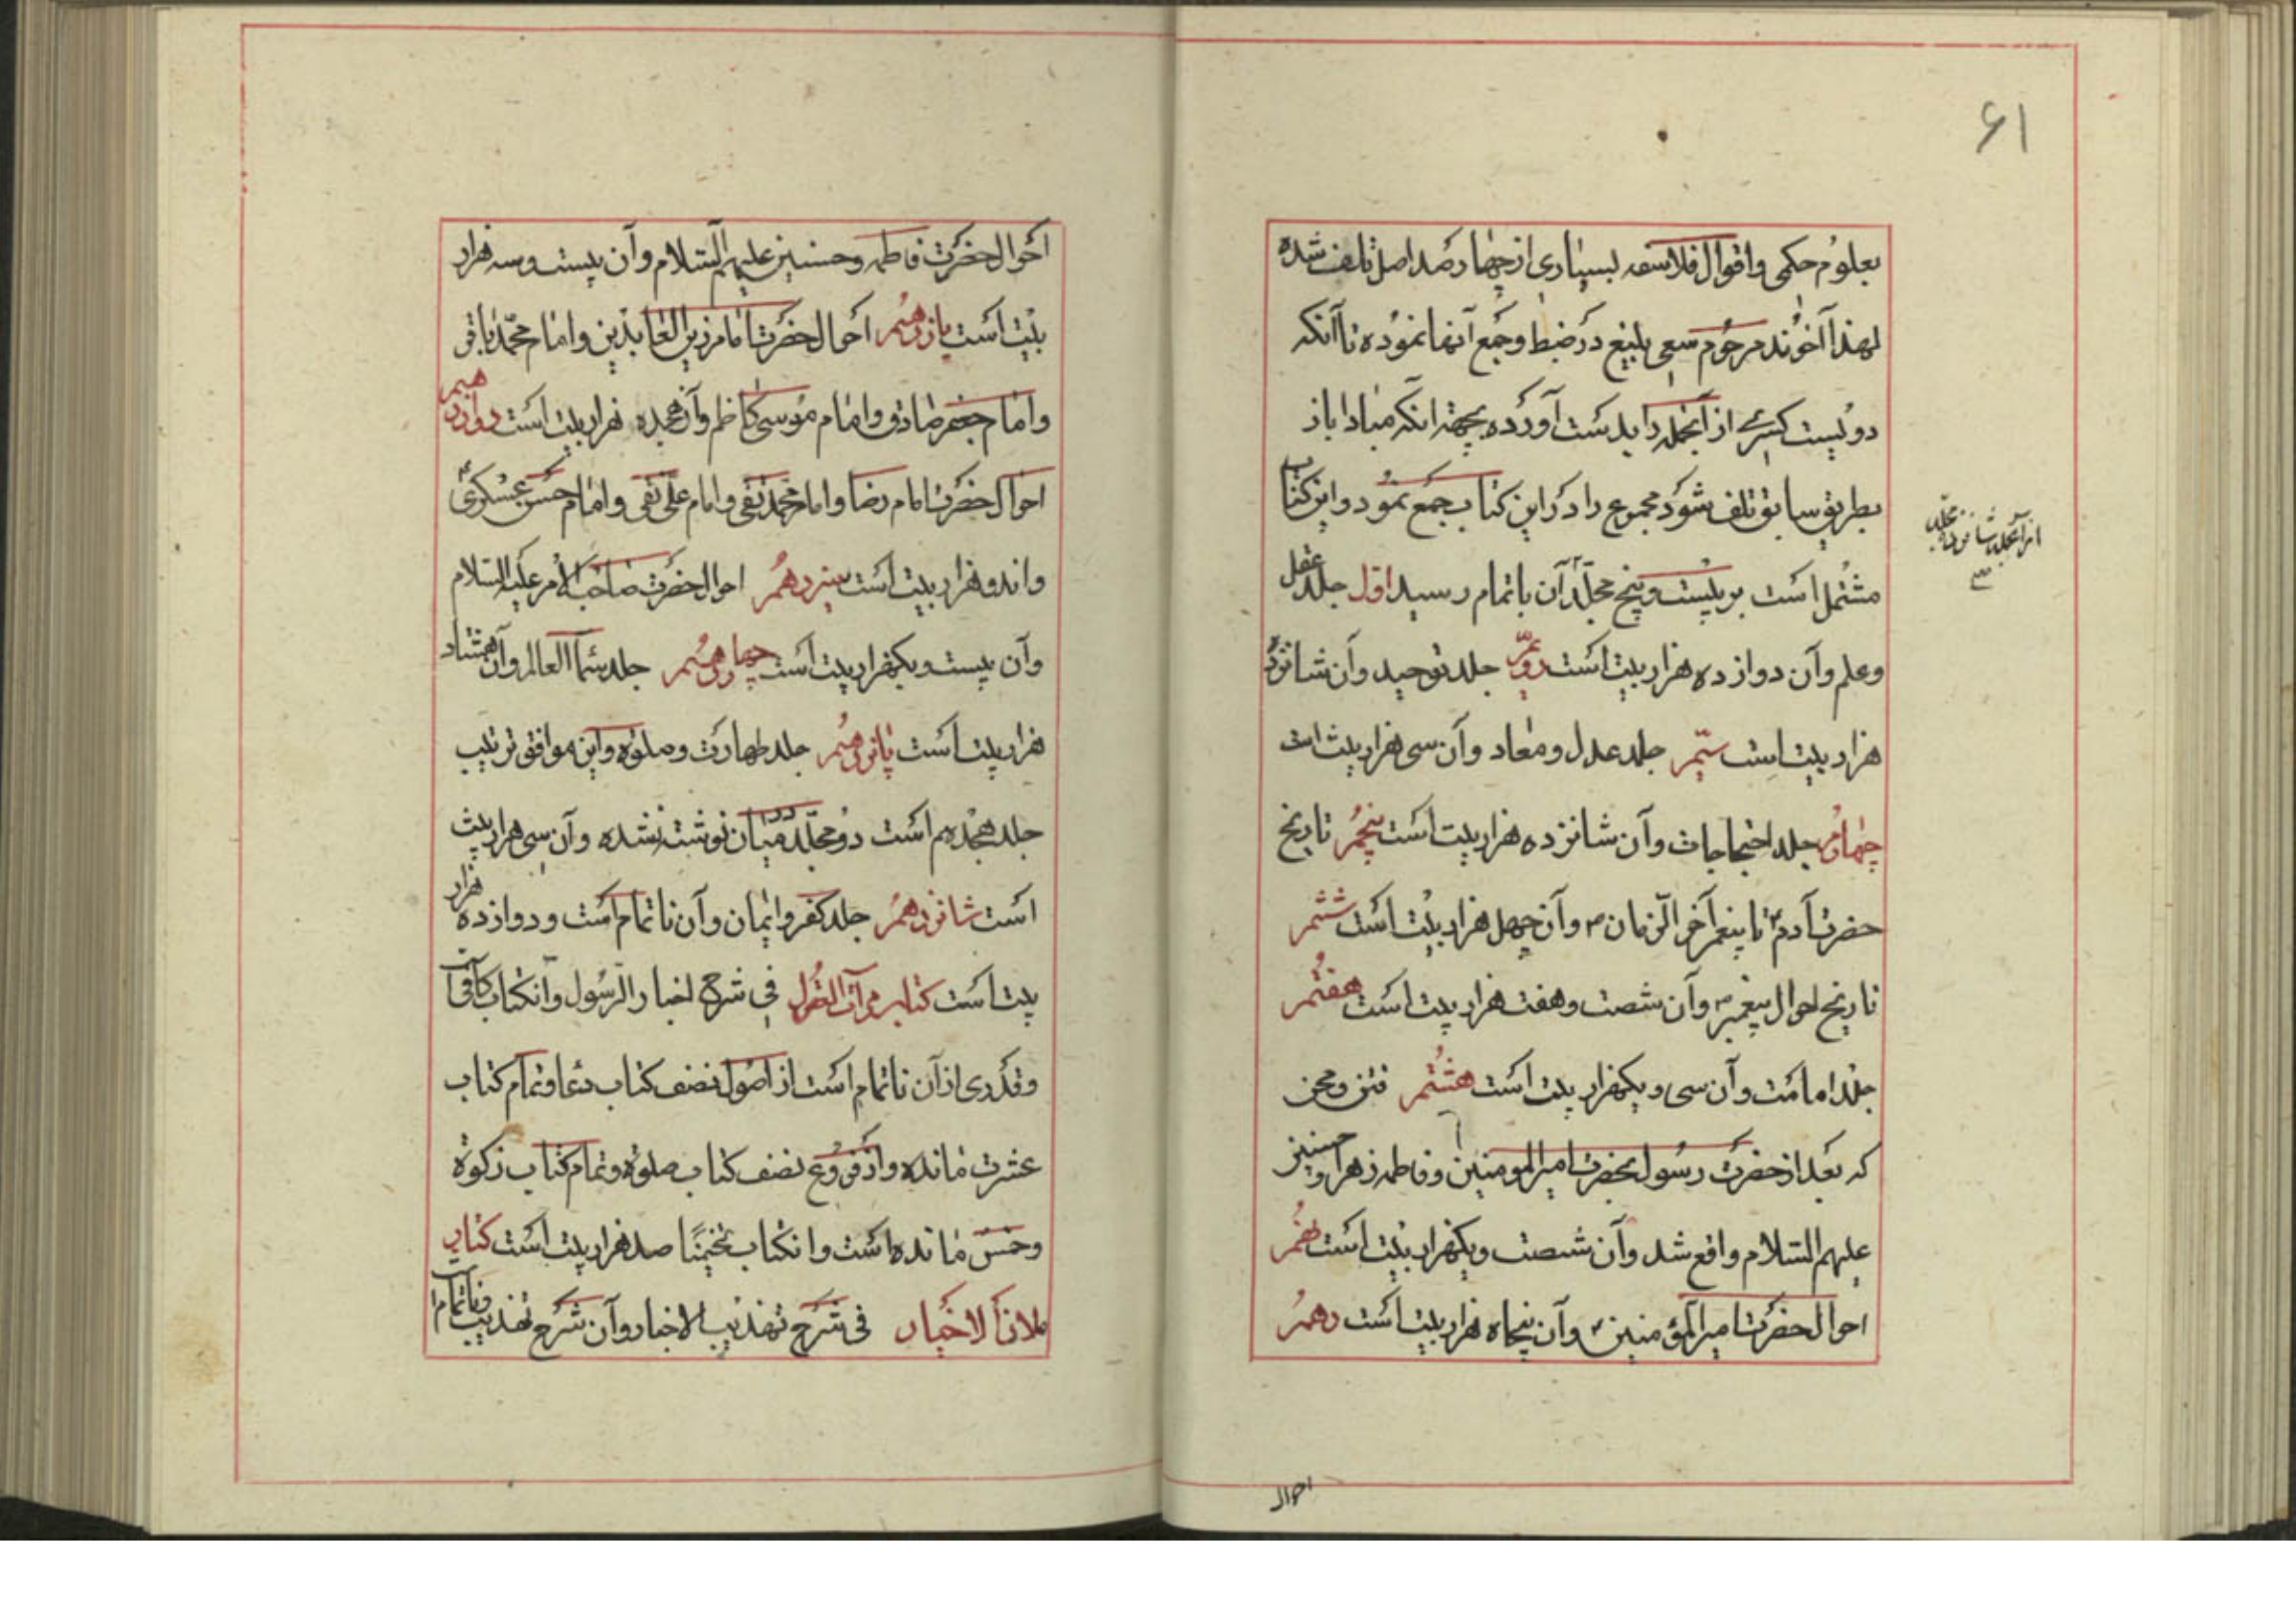 ۶۱
بعلوم حکمی واقوال فلاسفه بسیاری از چهار صد اصل تلف شده
لهذا آخوند مرحوم سعی بلیغ در ضبط وجمع آنها نموده تا آنکه
دویست کسری از آنجمله را بدست آورده بجهة انکه مبادا باز
بطریق سابق تلف شود مجموع را در این کتاب جمع نمود واین کتاب
مشتمل است بر بیست وپنج مجلد آن باتمام رسید اوّل جلد عقل
وعلم وآن دوازده هزار بیت است دویّم جلد توحید وآن شانزده
هزار بیت است سیّم جلد عدل ومعاد وآن سی هزار بیت است
چهارم جلد احتجاجات وآن شانزده هزار بیت است پنجم تاریخ
حضرت آدم ۴ تا پیغمبر آخر الزمان ص وآن چهل هزار بیت است ششم
تاریخ احوال پیغمبر ص وآن شصت وهفت هزار بیت است هفتم
جلد امامت وآن سی ویکهزار بیت است هشتم فتن ومحن
که بعد از حضرت رسول بحضرت امیر المومنین وفاطمه زهرا وحسنین
علیهم السّلام واقع شد وآن شصت ویکهزار بیت است نهم
احوال حضرت امیر المؤمنین ۴ وآن پنجاه هزار بیت است دهم
از آنجمله شانزده مجلد
احوال
احوال حضرت فاطمه وحسنین علیهم السّلام وآن بیست وسه هزار
بیت است یازدهم احوال حضرت امام زین العابدین وامام محمّد باقر
وامام جعفر صادق وامام موسی کاظم وآن هجده هزار بیت است دوازدهم
احوال حضرت امام رضا وامام محمد تقی وامام علی نقی وامام حسن عسکری
واندو هزار بیت است سیزدهم احوال حضرت صاحب الأمر علیه السلام
وآن بیست ویکهزار بیت است چهاردهم جلد سماء العالم وآن هشتاد
هزار بیت است پانزدهم جلد طهارت وصلوة واین موافق ترتیب
جلد هجدهم است دو مجلّد در میان نوشته نشده وآن سی هزار بیت
است شانزدهم جلد کفر وایمان وآن ناتمام است ودوازده هزار
بیت است کتاب مرآت العقول فی شرح اخبار الرّسول وآنکتاب کافی است
وقدری از آن ناتمام است از اصول نصف کتاب دعا وتمام کتاب
عشرت مانده واز فروع نصف کتاب صلوة وتمام کتاب زکوة
وخمس مانده است وانکتاب تخمینًا صد هزار بیت است کتاب
ملاذ الاخیار فی شرح تهذیب الاخبار وآن شرح تهذیب